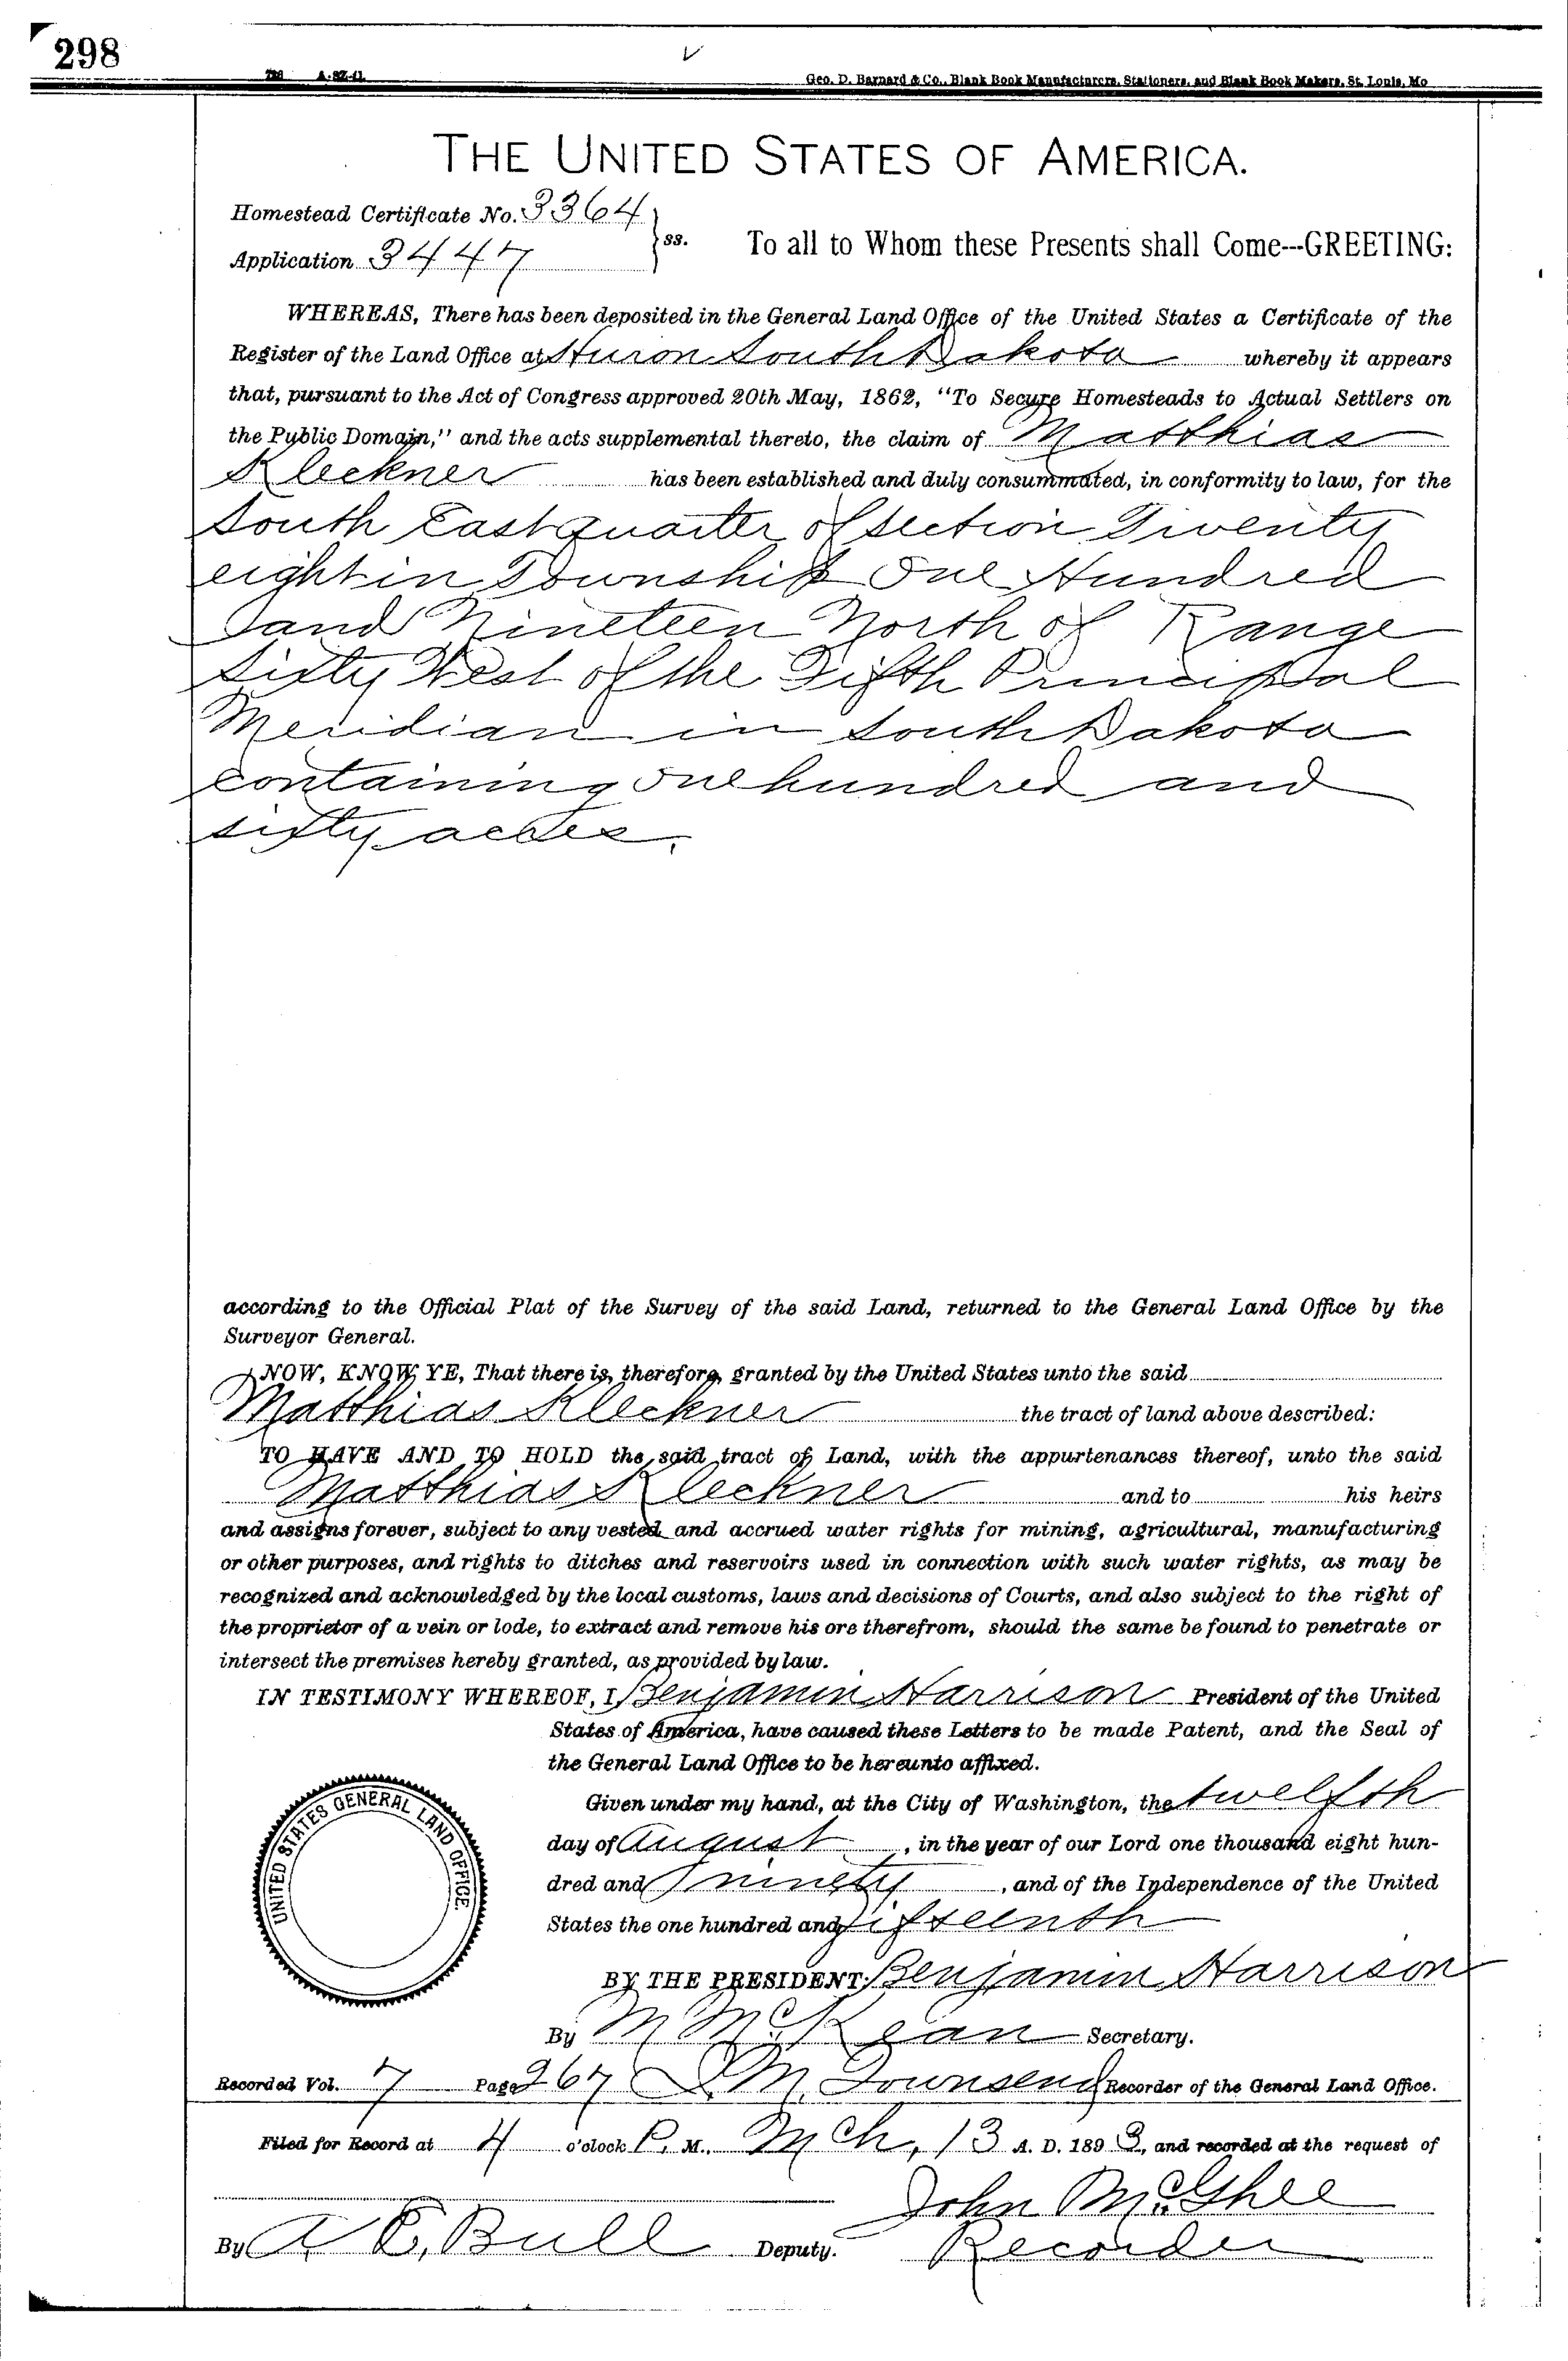 298
A-87-41
Geo. D. Barnard & Co., Blank Book Manufacturers, Stationers, and Blank Book Makers, St. Louis, Mo
THE UNITED STATES OF AMERICA.
Homestead Certificate No. 3364
Application 3447
ss. To all to Whom these Presents shall Come---GREETING:
WHEREAS, There has been deposited in the General Land Office of the United States a Certificate of the
Register of the Land Office at Huron South Dakota whereby it appears
that, pursuant to the Act of Congress approved 20th May, 1862, "To Secure Homesteads to Actual Settlers on
the Public Domain," and the acts supplemental thereto, the claim of Matthias
Kleckner has been established and duly consummated, in conformity to law, for the
South East quarter of Section Twenty
eight in Township One Hundred
and Nineteen North of Range
Sixty West of the Fifth Principal
Meridian in South Dakota
containing one hundred and
sixty acres.
according to the Official Plat of the Survey of the said Land, returned to the General Land Office by the
Surveyor General.
NOW, KNOW YE, That there is, therefore, granted by the United States unto the said
Matthias Kleckner the tract of land above described:
TO HAVE AND TO HOLD the said tract of Land, with the appurtenances thereof, unto the said
Matthias Kleckner and to his heirs
and assigns forever, subject to any vested and accrued water rights for mining, agricultural, manufacturing
or other purposes, and rights to ditches and reservoirs used in connection with such water rights, as may be
recognized and acknowledged by the local customs, laws and decisions of Courts, and also subject to the right of
the proprietor of a vein or lode, to extract and remove his ore therefrom, should the same be found to penetrate or
intersect the premises hereby granted, as provided by law.
IN TESTIMONY WHEREOF, I Benjamin Harrison President of the United
States of America, have caused these Letters to be made Patent, and the Seal of
the General Land Office to be hereunto affixed.
Given under my hand, at the City of Washington, the twelfth
day of August, in the year of our Lord one thousand eight hun-
dred and ninety, and of the Independence of the United
States the one hundred and fifteenth
UNITED STATES GENERAL LAND OFFICE.
BY THE PRESIDENT: Benjamin Harrison
By M McKean Secretary.
Recorded Vol. 7 Page 267 M. Townsend Recorder of the General Land Office.
Filed for Record at 4 o'clock P. M., Mch, 13 A. D. 1893, and recorded at the request of
John McGhee
By A E, Bull Deputy. Recorder